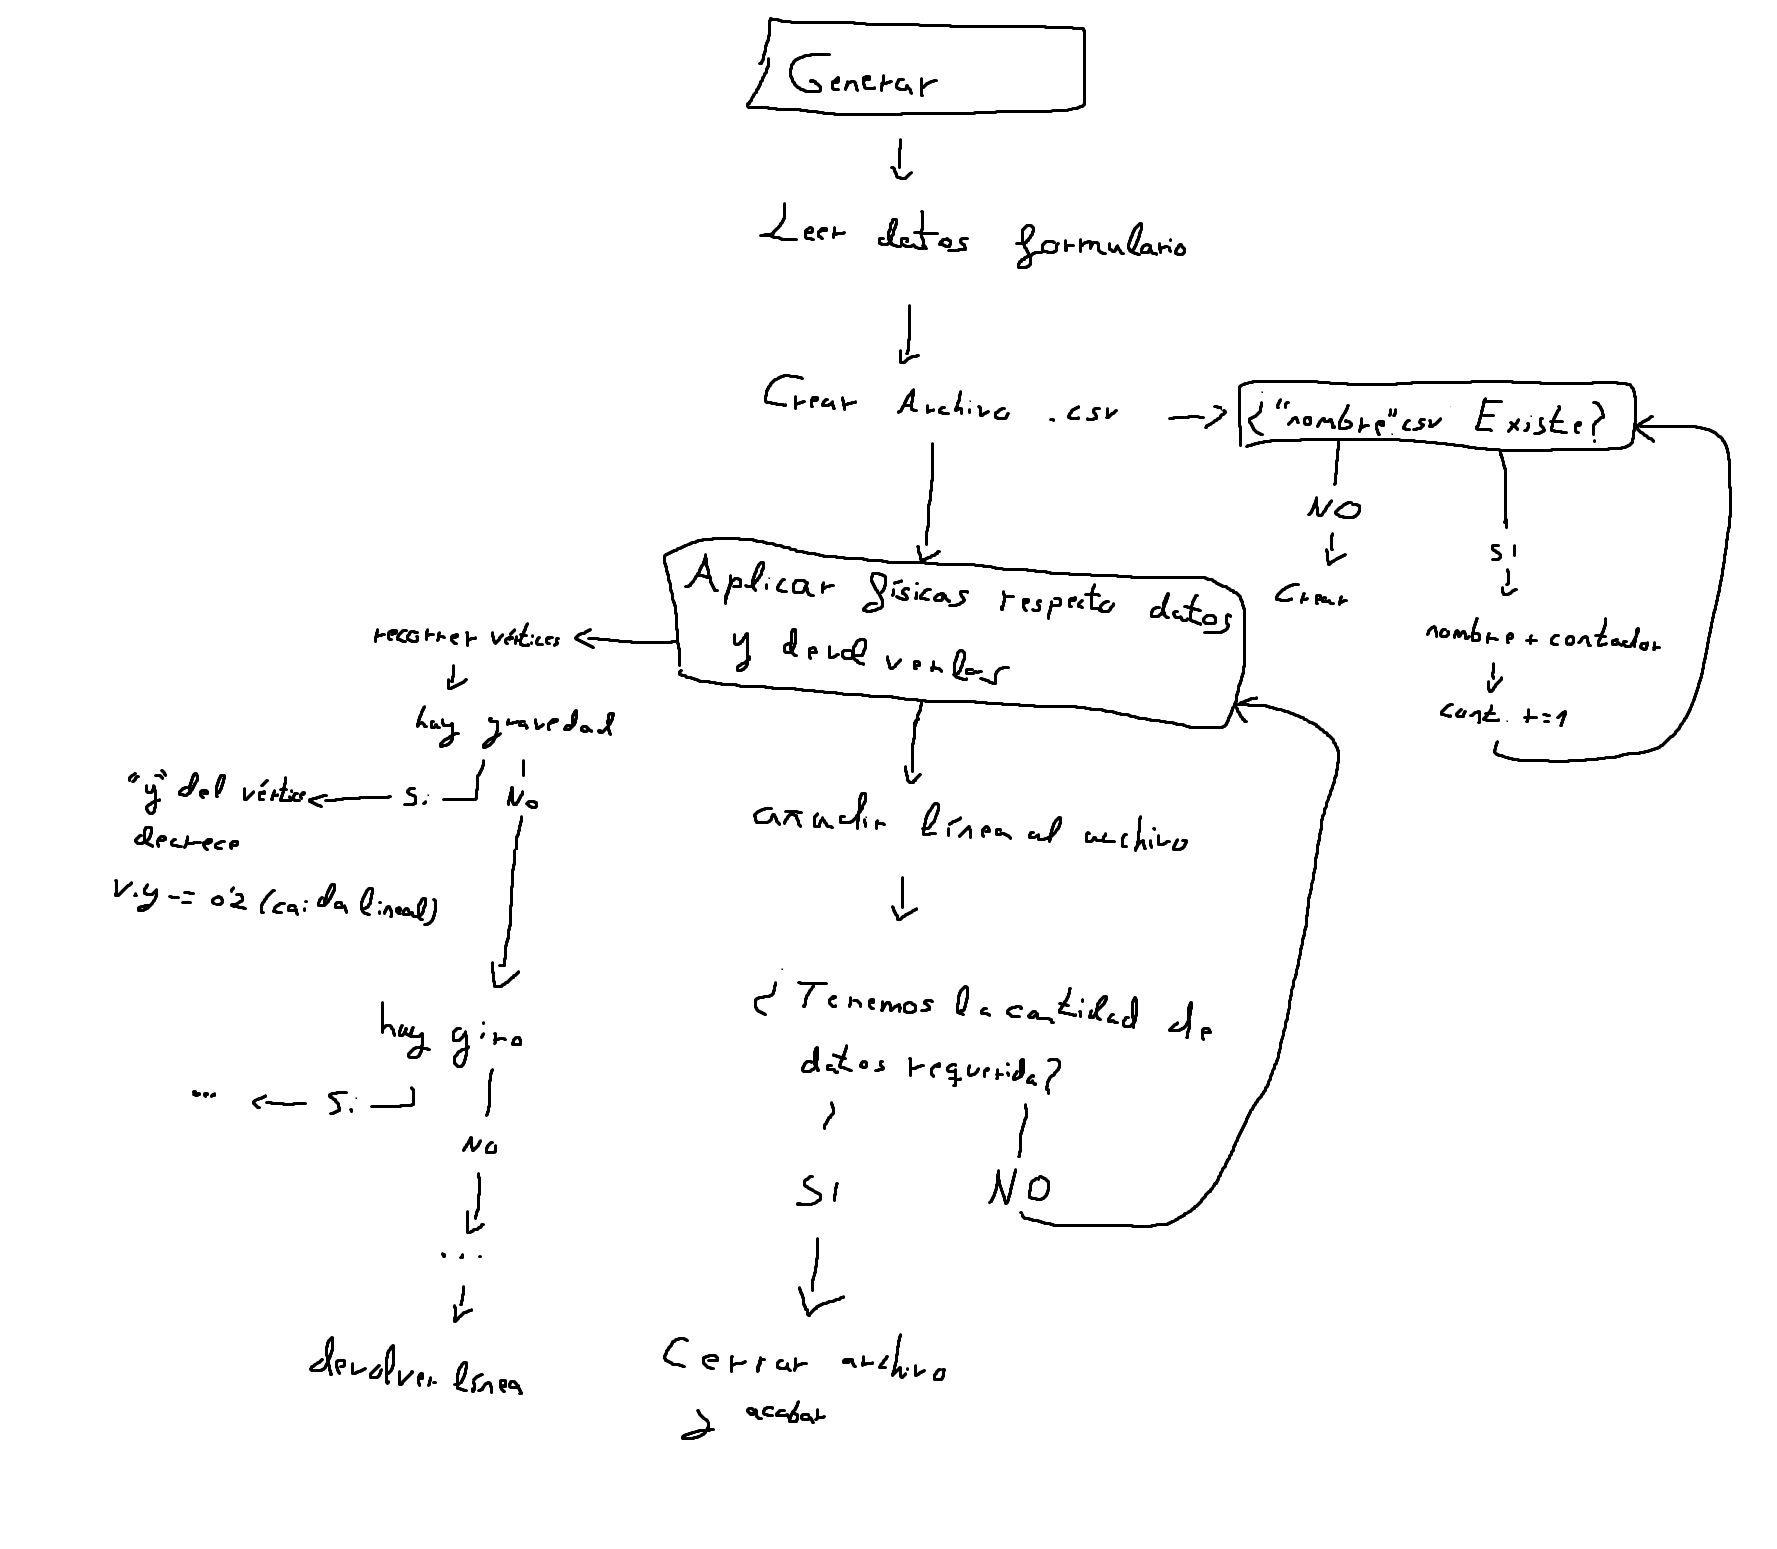 Generar
Leer datos formulario
Crear Archivo .csv
¿"nombre".csv Existe?
NO
Crear
SI
nombre + contador
cont. +=1
Aplicar físicas respecto datos
y devolverlos
recorrer vértices
hay gravedad
Si
No
"y" del vértice
decrece
v.y -= 0'2 (caida lineal)
hay giro
Si
...
NO
...
devolver línea
añadir línea al archivo
¿Tenemos la cantidad de
datos requerida?
SI
NO
Cerrar archivo
y acabar